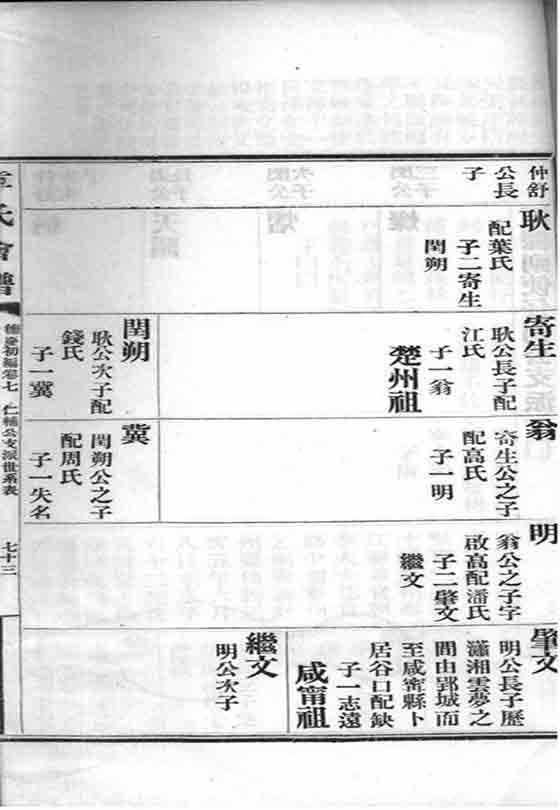 仲舒
公長
子
耿
配葉氏
子二寄生
閏朔
寄生
耿公長子配
江氏
子一翁
楚州祖
閏朔
耿公次子配
錢氏
子一冀
翁
寄生公之子
配高氏
子一明
冀
閏朔公之子
配周氏
子一失名
明
翁公之子字
啟高配潘氏
子二肇文
繼文
肇文
明公長子歷
瀟湘雲夢之
間由郢城而
至咸甯縣卜
居谷口配缺
子一志遠
咸甯祖
繼文
明公次子
氏會譜
德慶初編卷七 仁輔公支派世系表
七十三